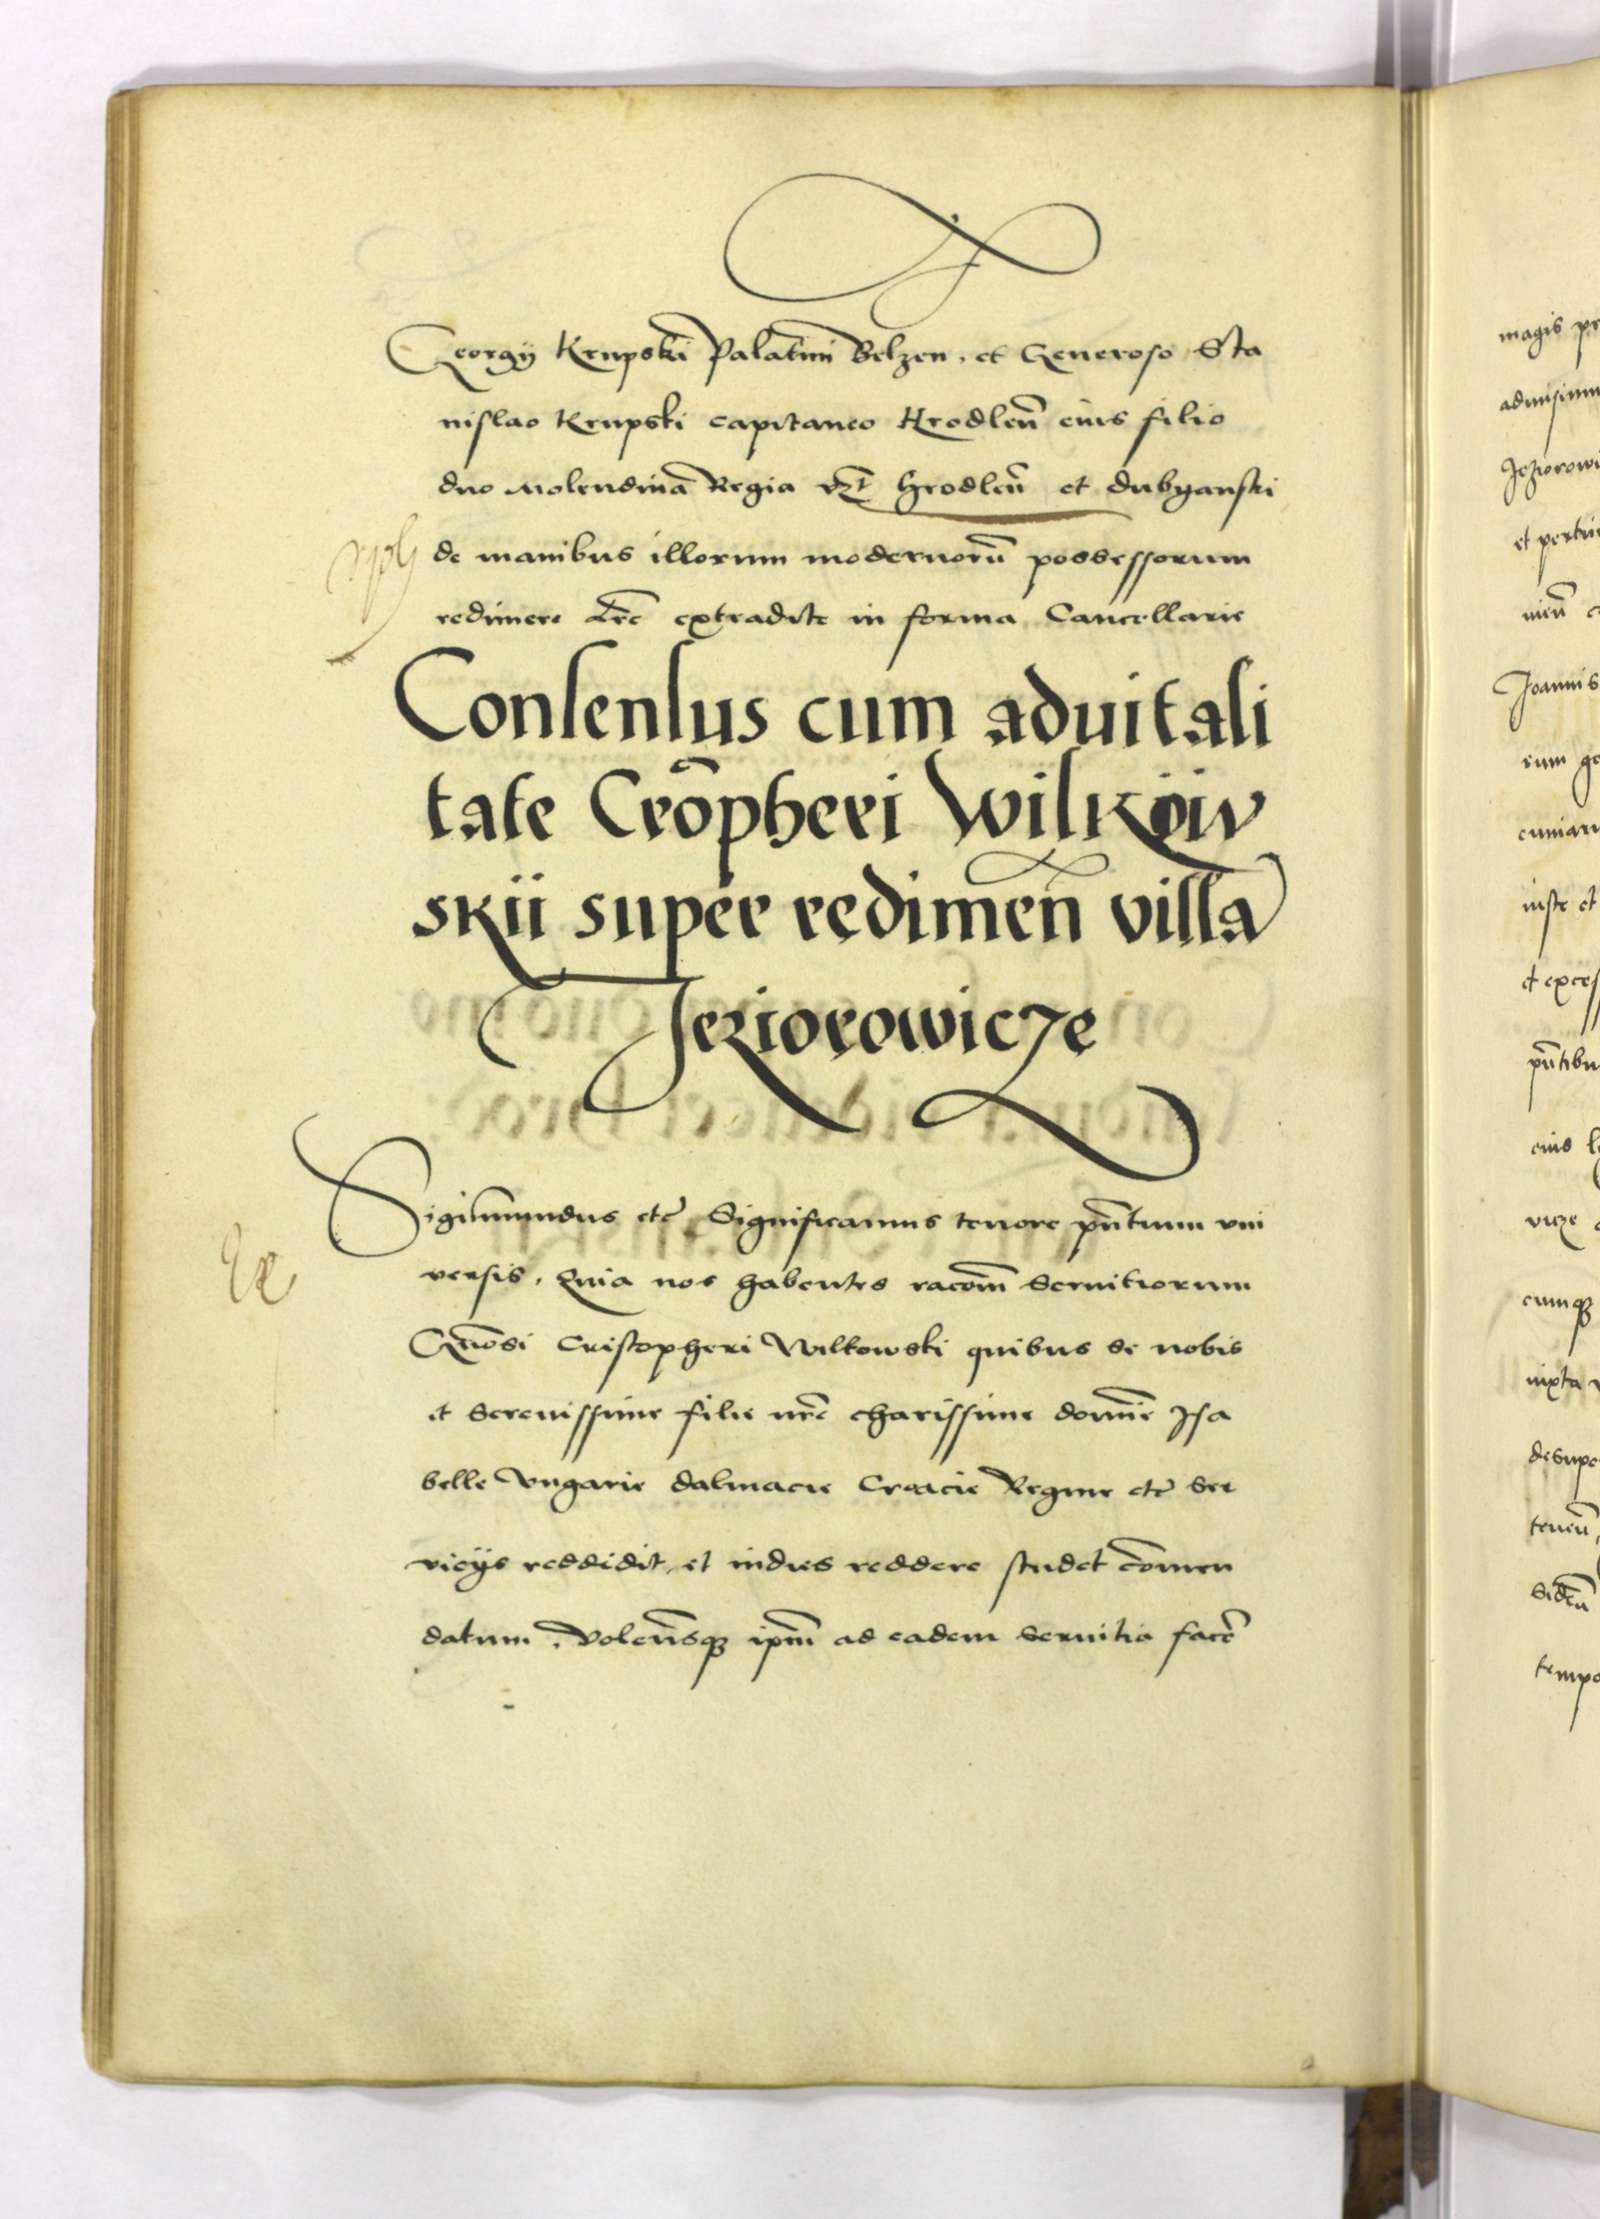 Georgy Krupski Palatini Belzen. et Generoso Sta
nislao Krupski capitaneo Hrodleñ eius filio
duo Molendina Regia vzt Hrodleñ et dubyanski
de manibus illorum modernorũ possessorum
redimere Lrẽ extradite in forma Cancellarie
Consensus cum aduitali
tate Crõpheri Wilkow
skii super redimeñ villa
Jeziorowicze
Sigismundus etc̃ Significamus tenore pñtium vni
versis. Quia nos habentes racõm Seruitiorum
Gñosi Cristopheri Wilkowski quibus se nobis
et Serenissime filie nrẽ charissime domine Isa
belle Vngarie dalmacie Croacie Regine etc̃ Ser
vicijs reddidit et indies reddere studet cõmen
datum. Volensq̃ ipm̃ ad eadem Seruitia facẽ
magis
Jeziorowi
et
Joannis
rum
iuste et
et
pñtibu
eius
cumq̃
iuxta
desupe
teneñ
tempo